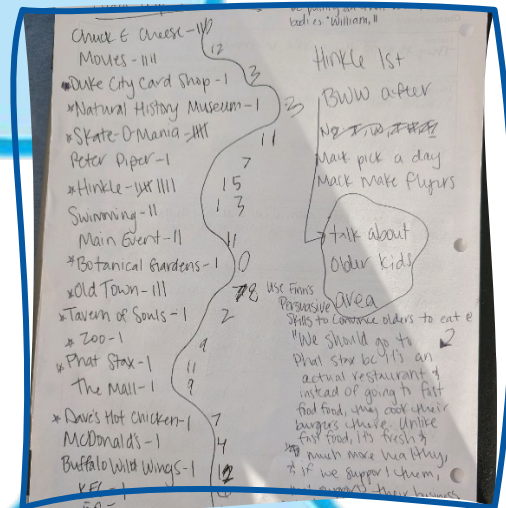 bodies "William,"
Chuck E Cheese - III
12
Movies - IIII
3
*Duke City Card Shop - I
*Natural History Museum - I
3
*Skate-O-Mania - IIII
11
Peter Piper - I
7
*Hinkle - IIII IIII
15
Swimming - II
13
Main Event - II
11
*Botanical Gardens - I
0
*Old Town - III
8
*Tavern of Souls - I
2
*Zoo - I
9
*Phat Stax - I
11
The Mall - I
9
*Dave's Hot Chicken - I
7
McDonald's - I
4
Buffalo Wild Wings - I
12
KFC - I
Hinkle 1st
BWW after
Mack pick a day
Mack make flyers
talk about
older kids
area
Use Finn's
Persuasive
Skills to convince olders to eat @
"We should go to
2
Phat Stax bc it's an
actual restaurant &
instead of going to fast
food food, they cook their
burgers there. Unlike
fast food, it's fresh &
much more healthy,
& if we support them,
their business